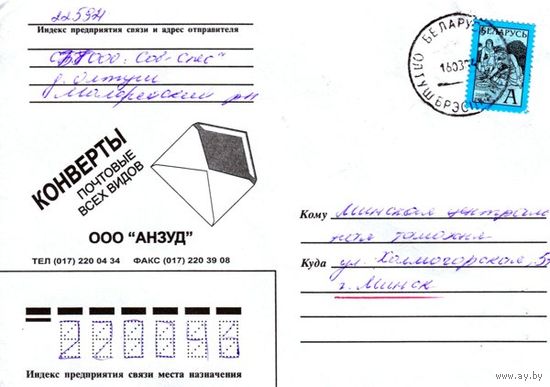 225921
Индекс предприятия связи и адрес отправителя
СВТ ООО "Сов-Спес"
д. Олтуш
Малоритский рн
КОНВЕРТЫ
ПОЧТОВЫЕ
ВСЕХ ВИДОВ
ООО “АНЗУД”
ТЕЛ (017) 220 04 34 ФАКС (017) 220 39 08
БЕЛАРУСЬ
ОЛТУШ БРЭСЦ
БЕЛАРУСЬ
А
Кому Минская централь
ная таможня
Куда ул. Холмогорская, 5
г. Минск
220046
Индекс предприятия связи места назначения
www.ay.by